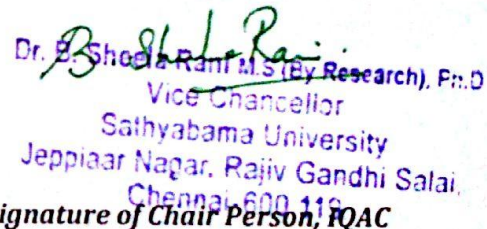 Dr. B. Sheela Rani M.S (By Research), Ph.D
B. Sheela Rani
Vice Chancellor
Sathyabama University
Jeppiaar Nagar, Rajiv Gandhi Salai,
Chennai-600 119
ignature of Chair Person, IQAC